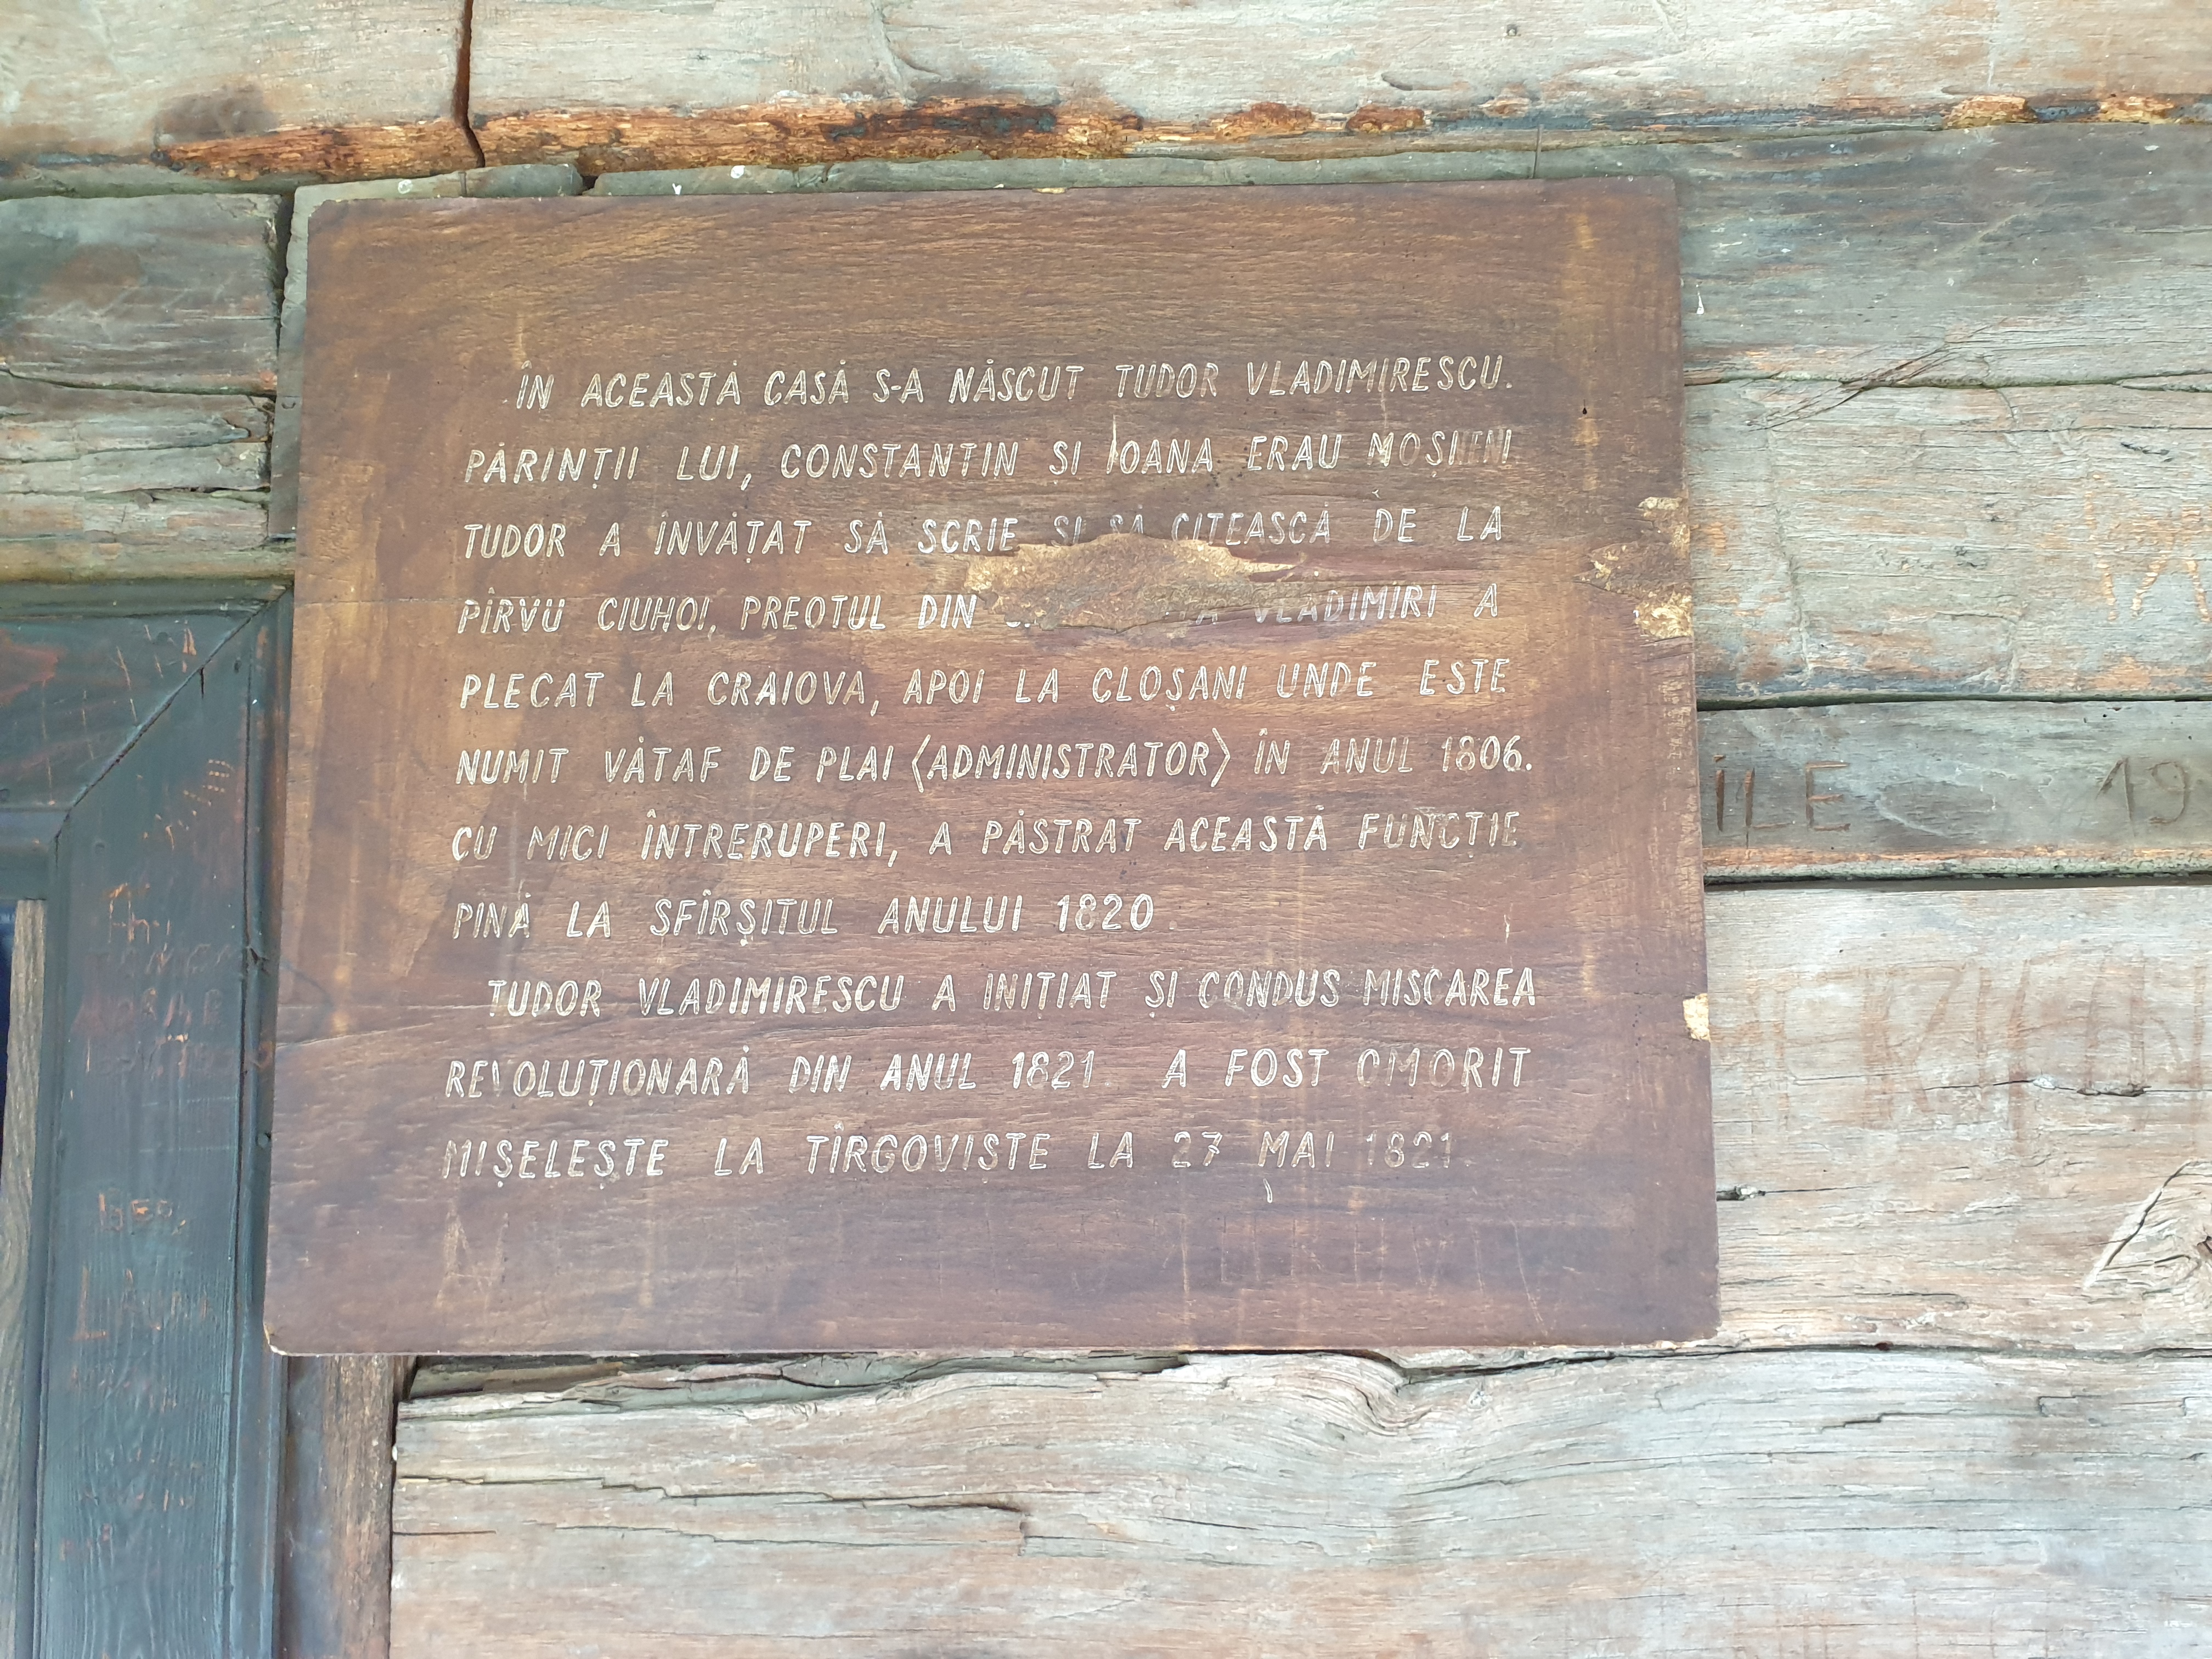 ÎN ACEASTĂ CASĂ S-A NĂSCUT TUDOR VLADIMIRESCU.
PĂRINȚII LUI, CONSTANTIN ȘI IOANA ERAU MOȘNENI
TUDOR A ÎNVĂȚAT SĂ SCRIE ȘI SĂ CITEASCĂ DE LA
PÎRVU CIUHOI, PREOTUL DIN VLADIMIRI A
PLECAT LA CRAIOVA, APOI LA CLOȘANI UNDE ESTE
NUMIT VĂTAF DE PLAI (ADMINISTRATOR) ÎN ANUL 1806.
CU MICI ÎNTRERUPERI, A PĂSTRAT ACEASTĂ FUNCȚIE
PINĂ LA SFÎRȘITUL ANULUI 1820.
TUDOR VLADIMIRESCU A INIȚIAT ȘI CONDUS MISCAREA
REVOLUȚIONARĂ DIN ANUL 1821. A FOST OMORIT
MIȘELEȘTE LA TÎRGOVISTE LA 27 MAI 1821.
ILE 19